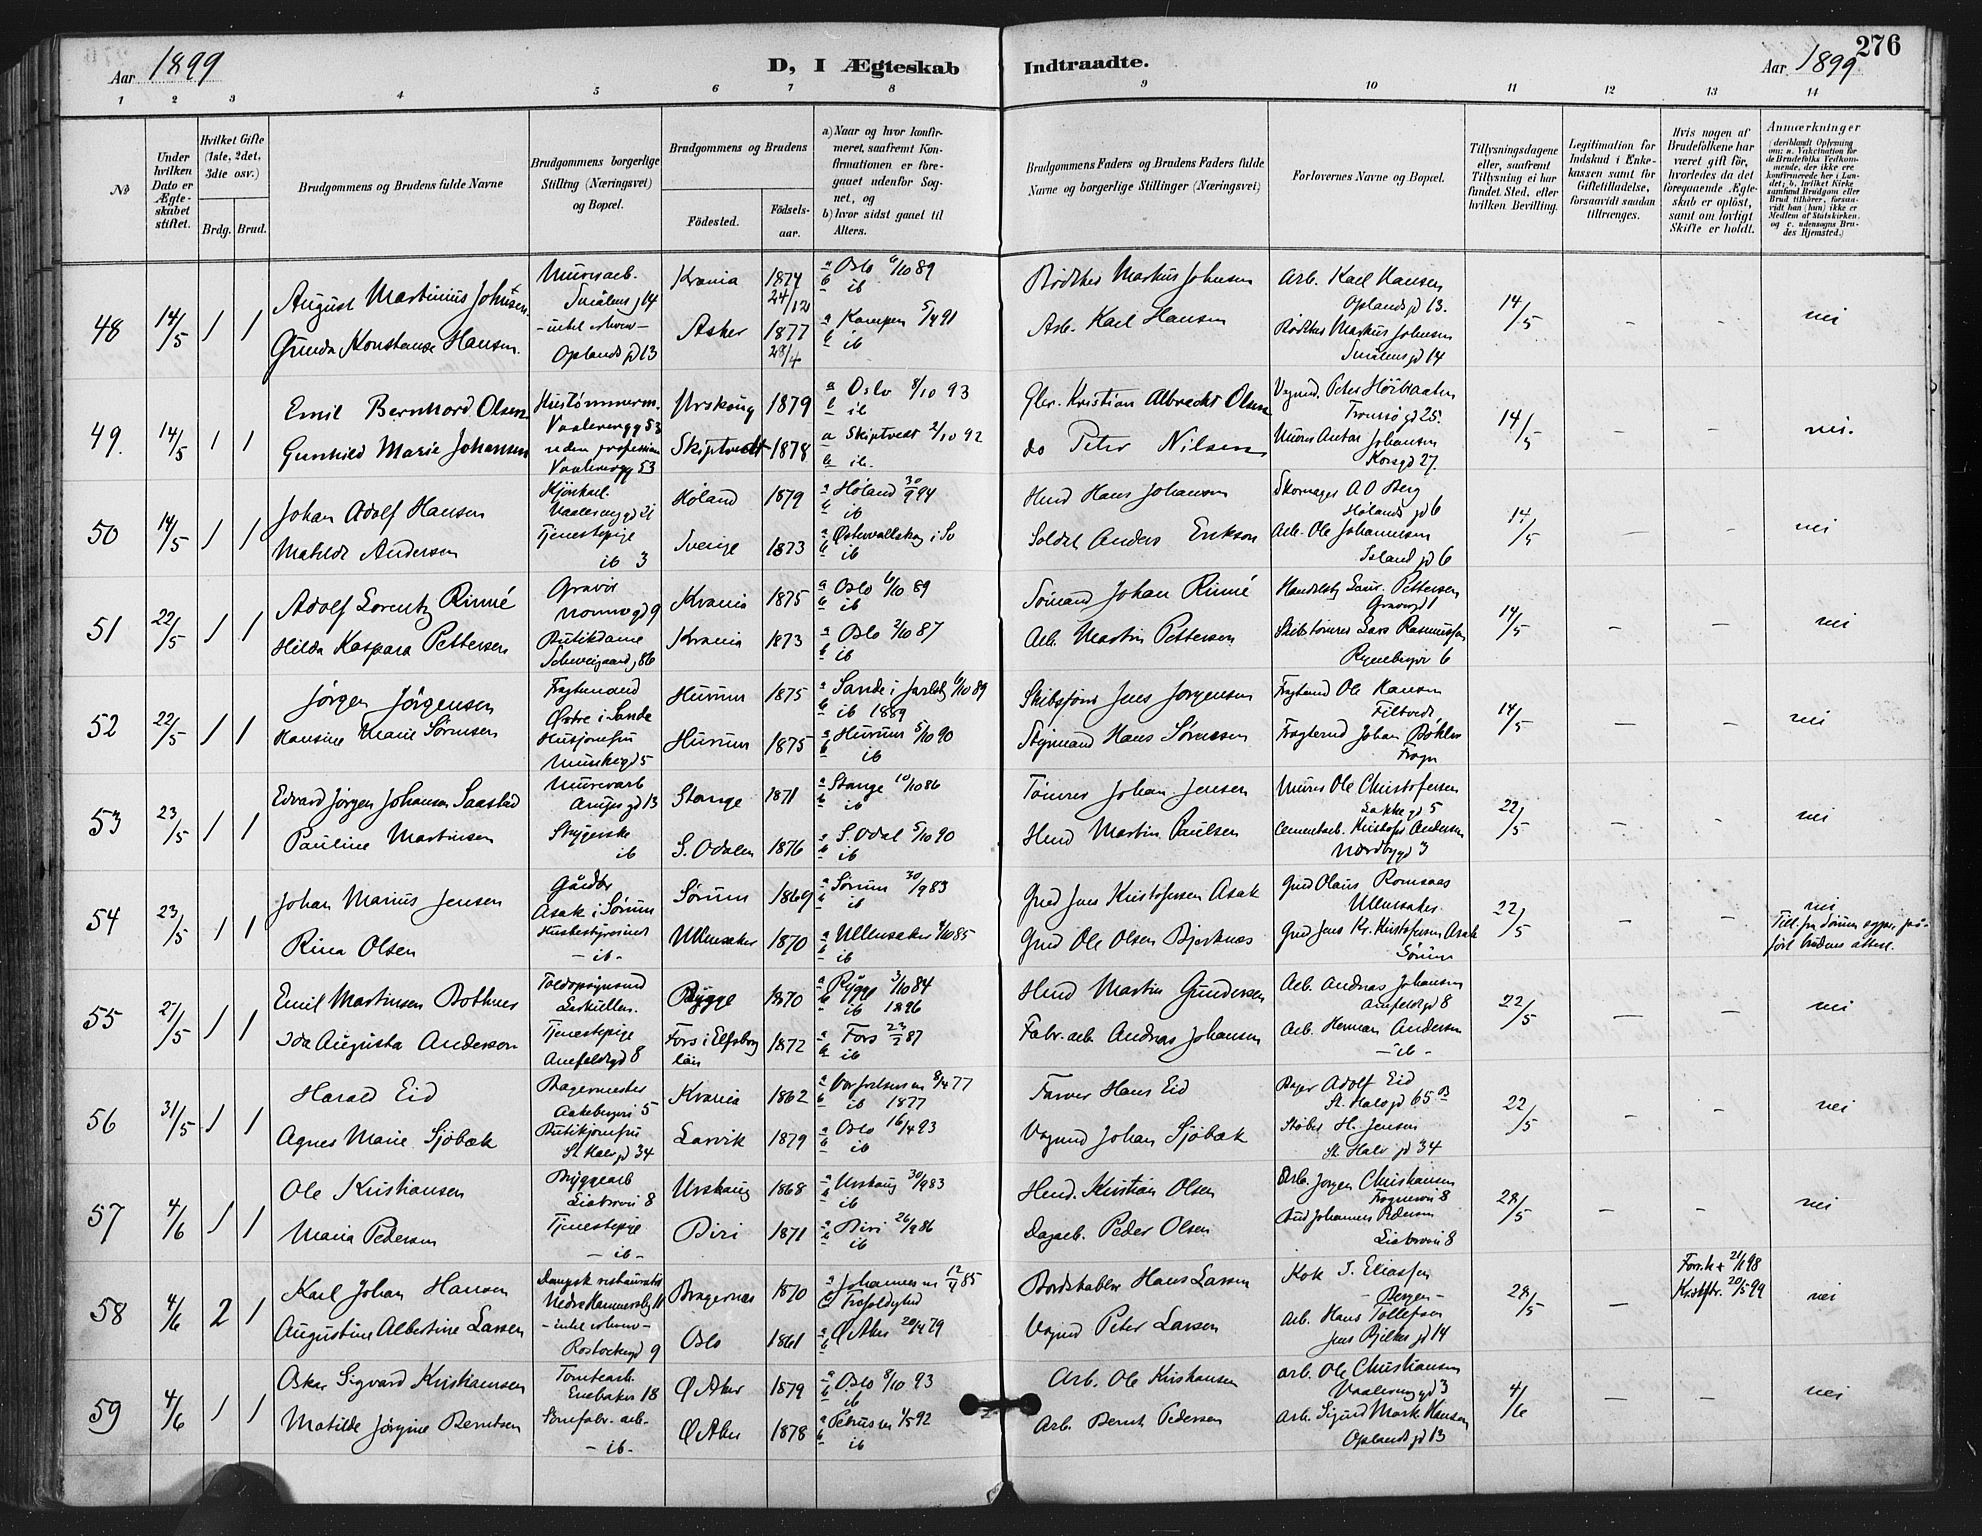 Aar 1899
D, I Ægteskab Indtraadte.
Aar 1899
276
1 2 3 4 5 6 7 8 9 10 11 12 13 14
No
Under hvilken Dato er Ægteskabet stiftet.
Hvilket Gifte (1ste, 2det, 3die osv.)
Brdg. Brud.
Brudgommens og Brudens fulde Navne
Brudgommens borgerlige Stilling (Næringsvei) og Bopæl.
Brudgommens og Brudens
Födested.
Födselsaar.
a) Naar og hvor konfirmeret, saafremt Konfirmationen er foregaaet udenfor Sognet, og
b) hvor sidst gaaet til Alters.
Brudgommens Faders og Brudens Faders fulde Navne og borgerlige Stillinger (Næringsvei)
Forlovernes Navne og Bopæl.
Tillysningsdagene eller, saafremt Tillysning ei har fundet Sted, efter hvilken Bevilling.
Legitimation for Indskud i Enkekassen samt for Giftetilladelse, forsaavidt saadan tiltrænges.
Hvis nogen af Brudefolkene har været gift för, hvorledes da det foregaaende Ægteskab er oplöst, samt om lovligt Skifte er holdt.
Anmærkninger (deriblandt Oplysning om: a. Vakcination for de Brudefolks Vedkommende, der ikke ere konfirmerede her i Landet; b. hvilket Kirkesamfund Brudgom eller Brud tilhörer, forsaavidt han (hun) ikke er Medlem af Statskirken. og c. udensogns Brudes Hjemsted.)
48 14/5 1 1 August Martinius Johnsen Murerarb. Smålens g 14 Krania 1874 24/12 a Oslo 6/10 89 b ib Markus Johnsen Arb. Karl Hansen Oplands gd 13. 14/5 – – nei
Gunda Konstanse Hansen. – intet erhverv – Oplands gd 13 Asker 1877 28/4 a Kampen 5/4 91 b ib Arb. Karl Hansen Markus Johnsen Smålens gd 14
49. 14/5 1 1 Emil Bernhard Olsen Hustömmerm. Vaalerengg 53 Urskoug 1879 a Oslo 8/10 93 b ib Kristian Albrecht Olsen Vognmd. Peter Tromsö gd 25. 14/5 – – nei.
Gunhild Marie Johansen uden profession Vaalerengg 53 Skiptvedt 1878 a Skiptvedt 2/10 92 b ib. do Peter Nilsen Murer Anton Johansen Korsgd 27.
50 14/5 1 1 Johan Adolf Hansen Vaalerenggd 21 Höland 1879 a Höland 30/9 94 b ib Hmd Hans Johansen Skomager A O Berg Hölands gd 6 14/5 – – nei
Matilde Andersen Tjenestepige ib 3 Sverige 1873 a Östervallskog i Sv b ib Soldat Anders Erikson Arb. Ole Johannesen Island gd 6
51 22/5 1 1 Adolf Lorentz Rinné Gravör gd 9 Krania 1875 a Oslo 6/10 89 b ib Sömand Johan Rinné Laur. Pettersen 14/5 – – nei
Hilda Kaspara Pettersen Butikdame Schweigaard g 86 Krania 1873 a Oslo 2/10 87 b ib Arb. Martin Pettersen Skibstömrer Lars Rasmussen 6
52 22/5 1 1 Jörgen Jörgensen Fragtemand Östre i Sande Hurum 1875 a Sande i Jarlsbg 6/10 89 b ib 1889 Jens Jörgensen Fragtemd Ole Hansen Filtvedt 14/5 – – nei
Hansine Marie Sörensen Husjomfru Munkegd 5 Hurum 1875 a Hurum 5/10 90 b ib Styrmand Hans Sörensen Johan Frogn
53 23/5 1 1 Edvard Jörgen Johansen Saastad Murerarb gd 13 Stange 1871 a Stange 10/10 86 b ib Tömrer Johan Jensen Murer Ole Christofersen Lakke gd 5 22/5 – – nei
Pauline Martinsen Strygerske ib S. Odalen 1876 a S. Odal 5/10 90 b ib Hmd Martin Paulsen Cementarb. Kristofer Andersen Nordbygd 3
54 23/5 1 1 Johan Marius Jensen Gårdbr Asak i Sörum Sörum 1869 a Sörum 30/9 83 b ib Grd Jens Kristofersen Asak Grd Olaus Romsaas Ullensaker 22/5 – – nei
Rina Olsen Husbestyrerinde – ib – Ullensaker 1870 a Ullensaker 4/10 85 b ib Grd Ole Olsen Bjerknes Grd Jens Kr. Kristofersen Asak Sörum Till. fra Sörum
55 27/5 1 1 Emil Martinsen Bothner Toldopsynsmd Rygge 1870 a Rygge 3/10 84 b ib 1896 Hmd Martin Gundersen Arb. Andreas Johansen Amfeldtgd 8 22/5 – – nei
Ida Augusta Anderson Tjenestepige Amfeldtgd 8 Fors i Elfsborg län 1872 a Fors 87 b ib Fabr. arb. Andreas Johansen Arb. Herman Andersen – ib –
56 31/5 1 1 Harald Eid Bagermester Aakebergvi 5 Krania 1862 a Vor frelsers m 8/4 77 b ib 1877 Farver Hans Eid Bager Adolf Eid St. Halv gd 65 B 22/5 – – nei
Agnes Marie Sjöbæk Butikjomfru St Halv gd 34 Larvik 1879 a Oslo 16/4 93 b ib Vognmd Johan Sjöbæk Stöber H. Jensen St. Halv gd 34
57 4/6 1 1 Ole Kristiansen Bryggearb 8 Urskoug 1868 a Urskoug 30/9 83 b ib Hmd. Kristian Olsen Arb. Jörgen Christiansen 8 28/5 – – nei
Maria Pedersen Tjenestepige – ib – Biri 1871 a Biri 26/9 86 b ib Dagarb. Peder Olsen Johannes Pedersen 8
58 4/6 2 1 Karl Johan Hansen Dampsk restauratör Nedre Hammersbg 11 Bragernæs 1870 a Johannes m 12/4 85 b Trefoldighed Hans Larsen Kok I. Eliassen – Bergen – 28/5 – 21/1 98 20/5 99 nei
Augustine Albertine Larsen – intet erhverv – Rostockergd 9 Oslo 1861 a Ö Aker 20/4 79 b Vognmd Peter Larsen Arb. Hans Tollefsen Jens Bjelkes gd 14
59 4/6 1 1 Oskar Sigvard Kristiansen Tomtearb. Enebakv 18 Ö Aker 1879 a Oslo 8/10 93 b ib Arb. Ole Kristiansen Arb. Ole Christiansen Vaalerenggd 3 4/6 – – nei
Matilde Jörgine Berntsen Sömfabr. arb. – ib – Ö Aker 1878 a Petrus m 1/5 92 b ib Arb. Bernt Pedersen Arb. Sigurd Mark. Hansen Oplands gd 13